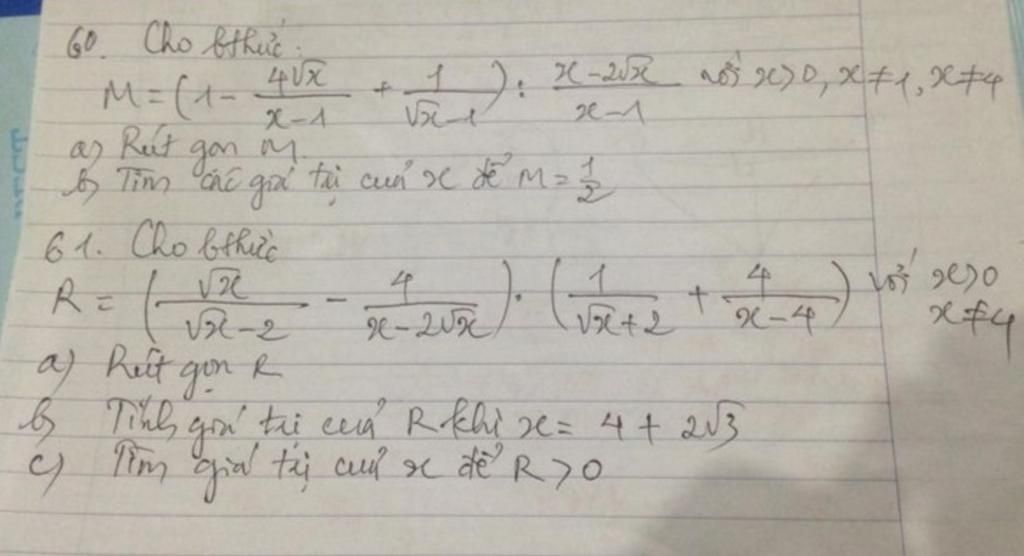 60. Cho bthức:
M = (1 - 4√x / x - 1 + 1 / √x - 1) : x - 2√x / x - 1 với x > 0, x ≠ 1, x ≠ 4
a) Rút gọn M.
b) Tìm các giá trị của x để M = 1/2
61. Cho bthức
R = (√x / √x - 2 - 4 / x - 2√x) . (1 / √x + 2 + 4 / x - 4) với x > 0 x ≠ 4
a) Rút gọn R
b) Tính giá trị của R khi x = 4 + 2√3
c) Tìm giá trị của x để R > 0